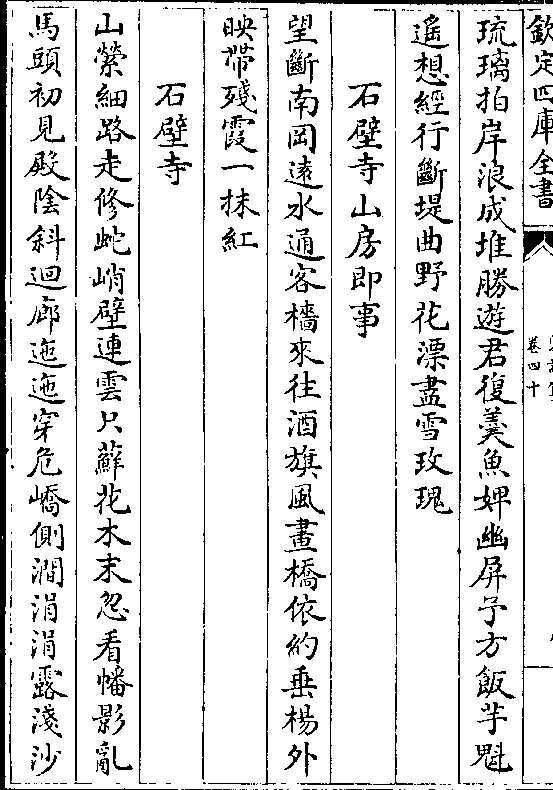 欽定四庫全書
卷四十
琉璃拍岸浪成堆勝遊君復羹魚婢幽屏予方飯芋魁
遙想經行斷堤曲野花漂盡雪玫瑰
石壁寺山房即事
望斷南岡遠水通客檣來往酒旗風畫橋依約垂楊外
映帶殘霞一抹紅
石壁寺
山縈細路走修蛇峭壁連雲只蘚花木末忽看幡影亂
馬頭初見殿陰斜迴廊迤迤穿危嶠側澗涓涓露淺沙